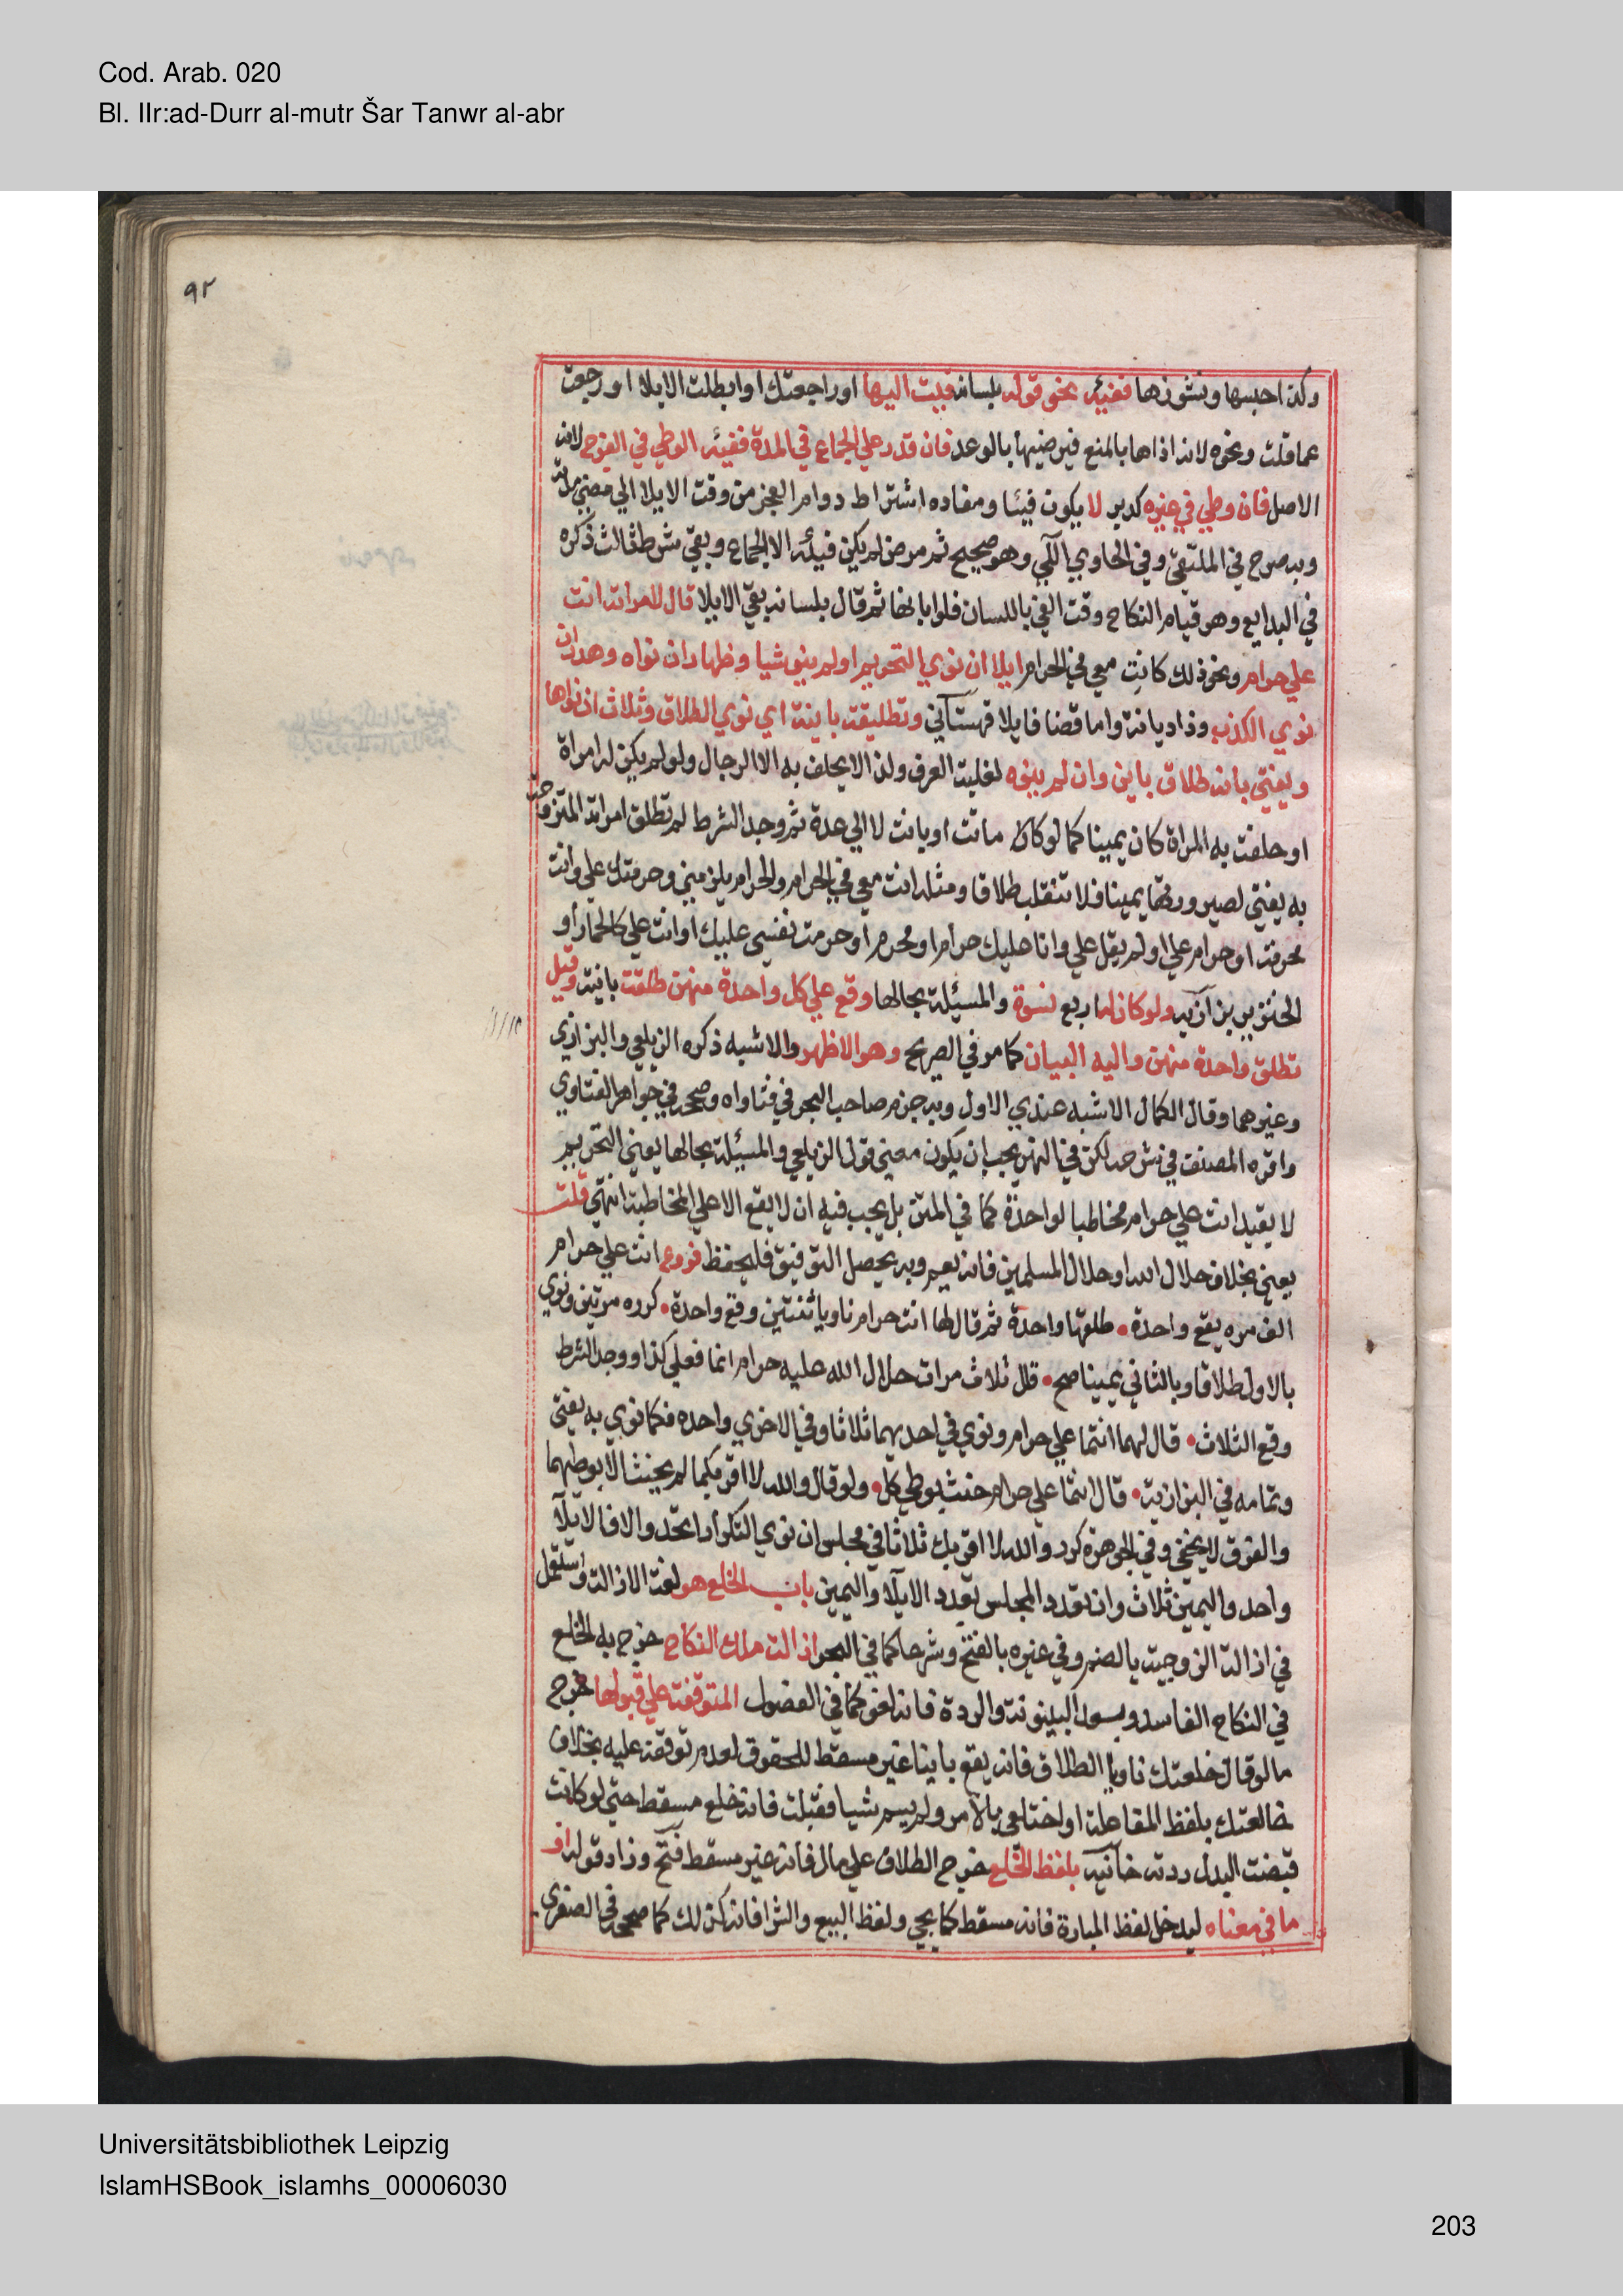 Cod. Arab. 020
Bl. IIr:ad-Durr al-mutr Šar Tanwr al-abr
٩٢
وكذا حبسها ونشوزها ففيئه بنحو قوله بلسانه فيت اليها او راجعتك او ابطلت الايلا او رجعت
عما قلت ونحوه لانه اذاها بالمنع فيرضيها بالوعد فان قدر علي الجماع في المدة ففيئه الوطي في الفرج لانه
الاصل فان وطي في غيره كدبر لا يكون فيئا ومفاده اشتراط دوام العجز من وقت الايلا الي مضي مدته
وبه صرح في الملتقي وفي الحاوي الي وهو صحيح ثم مرض لم يكن فيئه الا الجماع وبقي شرط ثالث ذكره
في البدايع وهو قيام النكاح وقت الفي باللسان فلو ابانها ثم قال بلسانه بقي الايلا قال لامراته انت
علي حرام ونحو ذلك كانت معي في الحرام ايلا ان نوي التحريم او لم ينو شيا وظهار ان نواه وهدر ان
نوي الكذب وذا ديانة واما قضا فايلا قهستاني وتطليقة باينة اي نوي الطلاق وثلاث ان نواها
ويفتي بانه طلاق باين وان لم ينوه لغلبة العرف ولذا لا يحلف به الا الرجال ولو لم يكن له امراة
او حلفت به المراة كان يمينا كما لو ماتت او بانت لا الي عدة ثم وجد الشرط لم تطلق امراته المتزوجة
به يفتي لصيرورتها يمينا فلا تنقلب طلاقا ومثله انت معي في الحرام والحرام يلزمني وحرمتك علي وانت
محرمة او حرام علي او لم يقل علي وانا عليك حرام او محرم او حرمت نفسي عليك او انت علي كالحمار او
الخنزير بزازيه ولو كان له اربع نسوة والمسئلة بحالها وقع علي كل واحدة منهن طلقة باينة وقيل
تطلق واحدة منهن واليه البيان كما مر في الصريح وهو الاظهر والاشبه ذكره الزيلعي والبزازي
وغيرهما وقال الكمال الاشبه عندي الاول وبه جزم صاحب البحر في فتاواه وصححه في جواهر الفتاوي
واقره المصنف في شرحه لكن في النهر يجب ان يكون معني قول الزيلعي والمسئلة بحالها يعني التحريم
لا يقيد انت علي حرام مخاطبا لواحدة كما في المتن بل يجب فيه ان لا يقع الا علي المخاطبة انتهي قلت
يعني بخلاف حلال الله او حلال المسلمين فانه يعم وبه يحصل التوفيق فليحفظ فروع انت علي حرام
الف مره يقع واحدة • طلقها واحدة ثم قال لها انت حرام ناويا ثنتين وقع واحدة • كرره مرتين ونوي
بالاول طلاقا وبالثاني يمينا صح • قال ثلاث مرات حلال الله عليه حرام انما فعلي كذا ووجد الشرط
وقع الثلاث • قال لهما انتما علي حرام ونوي في احديهما ثلاثا وفي الاخري واحده فكما نوي به يفتي
وتمامه في البزازية • قال انتما علي حرام حنث بوطي كل • ولو قال والله لا اقربكما لم يحنث الا بوطيهما
والفرق لا يخفي وفي الجوهرة كرر والله لا اقربك ثلاثا في مجلس ان نوي التكرار اتحد والا فالايلا
واحد واليمين ثلاث وان تعدد المجلس تعدد الايلا واليمين باب الخلع هو لغة الازالة واستعمل
في ازالة الزوجية بالضم وفي غيره بالفتح وشرعا كما في البحر ازالة ملك النكاح خرج به الخلع
في النكاح الفاسد وبعد البينونة والردة فانه لغو كما في الفصول المتوقفة علي قبولها خرج
ما لو قال خلعتك ناويا الطلاق فانه يقع باينا غير مسقط للحقوق لعدم توقفه عليه بخلاف
خالعتك بلفظ المفاعلة او اختلعي بالامر ولم يسم شيا فقبلت فانه خلع مسقط حتي لو كانت
قبضت البدل ردته خانيه بلفظ الخلع خرج الطلاق علي مال فانه غير مسقط فتح وزاد قوله او
ما في معناه ليدخل لفظ المبارة فانه مسقط كما يجي ولفظ البيع والشرا فانه كذلك كما صححه في الصغري
Universitätsbibliothek Leipzig
IslamHSBook_islamhs_00006030
203